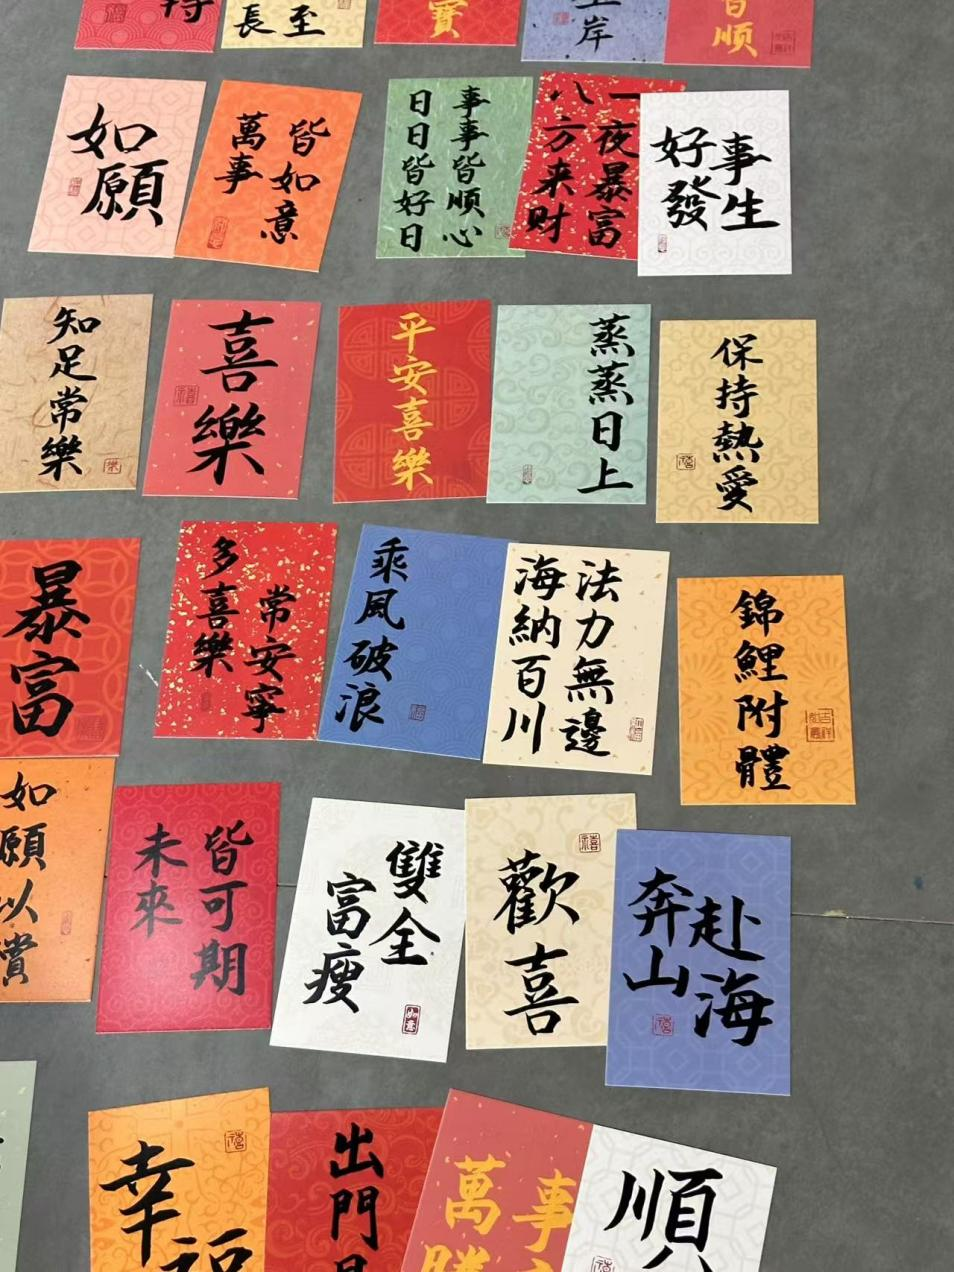 持
長
至
寶
岸
順
如
願
皆如意
萬事
事事皆順心
日日皆好日
一夜暴富
八方来财
事生
好發
知足常樂
喜樂
平安喜樂
蒸蒸日上
保持熱愛
暴富
常安寧
多喜樂
乘風破浪
法力無邊
海納百川
錦鯉附體
如願以償
皆可期
未來
雙全
富瘦
如意
歡喜
赴海
奔山
幸福
出門
事
萬勝
順